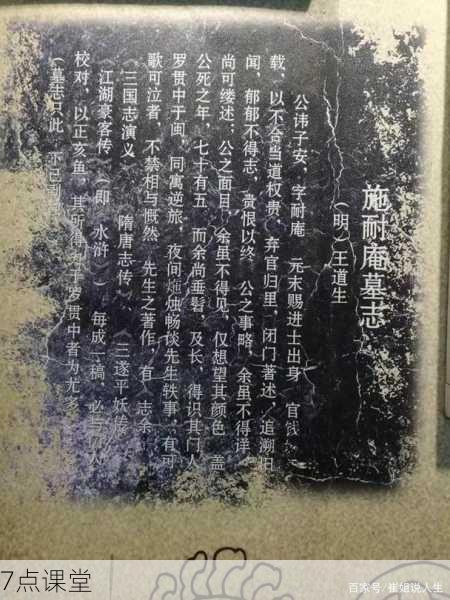 施耐庵墓志
（明）王道生
公讳子安，字耐庵 元末赐进士出身 官钱
载，以不合当道权贵，弃官归里，闭门著述，追溯旧
闻，郁郁不得志，赍恨以终 公之事略，余虽不得详，
尚可缕述；公之面目，余虽不得见，仅想望其颜色 盖
公死之年，七十有五 而余尚垂髫 及长，得识其门人
罗贯中于闽，同寓逆旅，夜间炧烛畅谈先生轶事，有可
歌可泣者，不禁相与慨然 先生之著作，有 志余
《三国志演义 隋唐志传 三遂平妖传
《江湖豪客传》（即 水浒 ） 每成一稿，必与 人
校对，以正亥鱼，其所得 于罗贯中者为尤多
（墓志只此 不已
7点课堂
百家号/崔姐说人生